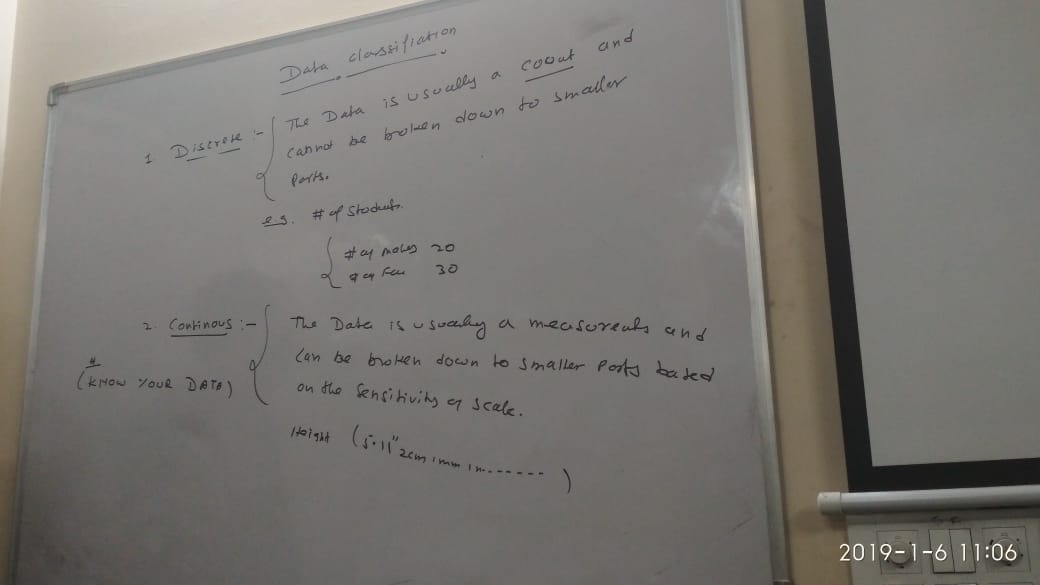 Data classifiation
1. Discrete :- The Data is usually a count and
cannot be broken down to smaller
parts.
e.g. # of Students.
# of males 20
# of Fem 30
2. Continous :- The Data is usually a measurents and
(KNOW YOUR DATA)
can be broken down to smaller parts based
on the Sensitivity of scale.
Height (5.11" 2cm 1mm 1n....... )
2019-1-6 11:06